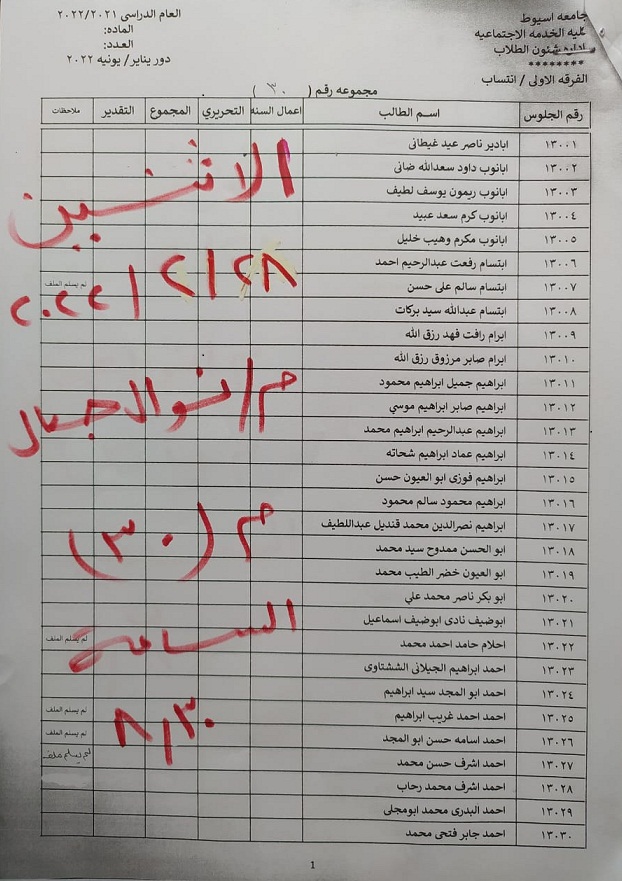 جامعه اسيوط
كليه الخدمه الاجتماعيه
اداره شئون الطلاب
********
الفرقه الاولى / انتساب
العام الدراسى ٢٠٢٢/٢٠٢١
الماده:
العدد:
دور يناير/ يونيه ٢٠٢٢
مجموعه رقم ( ٣٠ )
رقم الجلوس اسم الطالب اعمال السنه التحريري المجموع التقدير ملاحظات
١٣٠٠١ ابادير ناصر عيد غيطانى
١٣٠٠٢ ابانوب داود سعدالله ضانى
١٣٠٠٣ ابانوب ريمون يوسف لطيف
١٣٠٠٤ ابانوب كرم سعد عبيد
١٣٠٠٥ ابانوب مكرم وهيب خليل
١٣٠٠٦ ابتسام رفعت عبدالرحيم احمد
١٣٠٠٧ ابتسام سالم على حسن لم يسلم الملف
١٣٠٠٨ ابتسام عبدالله سيد بركات
١٣٠٠٩ ابرام رافت فهد رزق الله
١٣٠١٠ ابرام صابر مرزوق رزق الله
١٣٠١١ ابراهيم جميل ابراهيم محمود
١٣٠١٢ ابراهيم صابر ابراهيم موسي
١٣٠١٣ ابراهيم عبدالرحيم ابراهيم محمد
١٣٠١٤ ابراهيم عماد ابراهيم شحاته
١٣٠١٥ ابراهيم فوزى ابو العيون حسن
١٣٠١٦ ابراهيم محمود سالم محمود
١٣٠١٧ ابراهيم نصرالدين محمد قنديل عبداللطيف
١٣٠١٨ ابو الحسن ممدوح سيد محمد
١٣٠١٩ ابو العيون خضر الطيب محمد
١٣٠٢٠ ابو بكر ناصر محمد علي
١٣٠٢١ ابوضيف نادى ابوضيف اسماعيل
١٣٠٢٢ احلام حامد احمد محمد لم يسلم الملف
١٣٠٢٣ احمد ابراهيم الجيلانى الششتاوى
١٣٠٢٤ احمد ابو المجد سيد ابراهيم
١٣٠٢٥ احمد احمد غريب ابراهيم لم يسلم الملف
١٣٠٢٦ احمد اسامه حسن ابو المجد لم يسلم الملف
١٣٠٢٧ احمد اشرف حسن محمد لم يسلم ملف
١٣٠٢٨ احمد اشرف محمد رحاب
١٣٠٢٩ احمد البدرى محمد ابومجلى
١٣٠٣٠ احمد جابر فتحى محمد
الاثنين
٢٨ / ٢ / ٢٠٢٢
م/ ابو الاجمال
م (٣٠)
الساعة
٨/٣٠
1